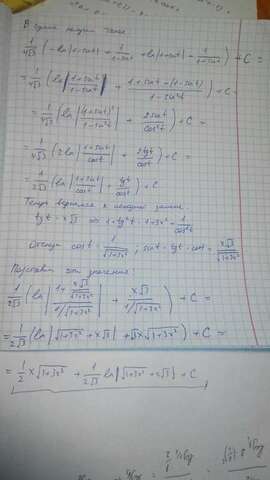 В сумме получим такое
1/(4√3) (-ln|1-sint| + 1/(1-sint) + ln|1+sint| - 1/(1+sint)) + C =
= 1/(4√3) (ln|(1+sint)/(1-sint)| + (1+sint-(1-sint))/(1-sin²t)) + C =
= 1/(4√3) (ln|(1+sint)²/(1-sin²t)| + 2sint/cos²t) + C =
= 1/(4√3) (2ln|(1+sint)/cost| + 2tgt/cost) + C =
= 1/(2√3) (ln|(1+sint)/cost| + tgt/cost) + C
Теперь вернемся к замене
tgt = x√3 ⇒ 1+tg²t = 1+3x² = 1/cos²t
Отсюда cost = 1/√(1+3x²) ; sint = tgt · cost = x√3/√(1+3x²)
Подставим эти значения:
1/(2√3) (ln|(1 + x√3/√(1+3x²))/(1/√(1+3x²))| + x√3/(1/√(1+3x²))) + C =
= 1/(2√3) (ln|√(1+3x²) + x√3| + √3x√(1+3x²)) + C =
= 1/2 x√(1+3x²) + 1/(2√3) ln|√(1+3x²) + x√3| + C